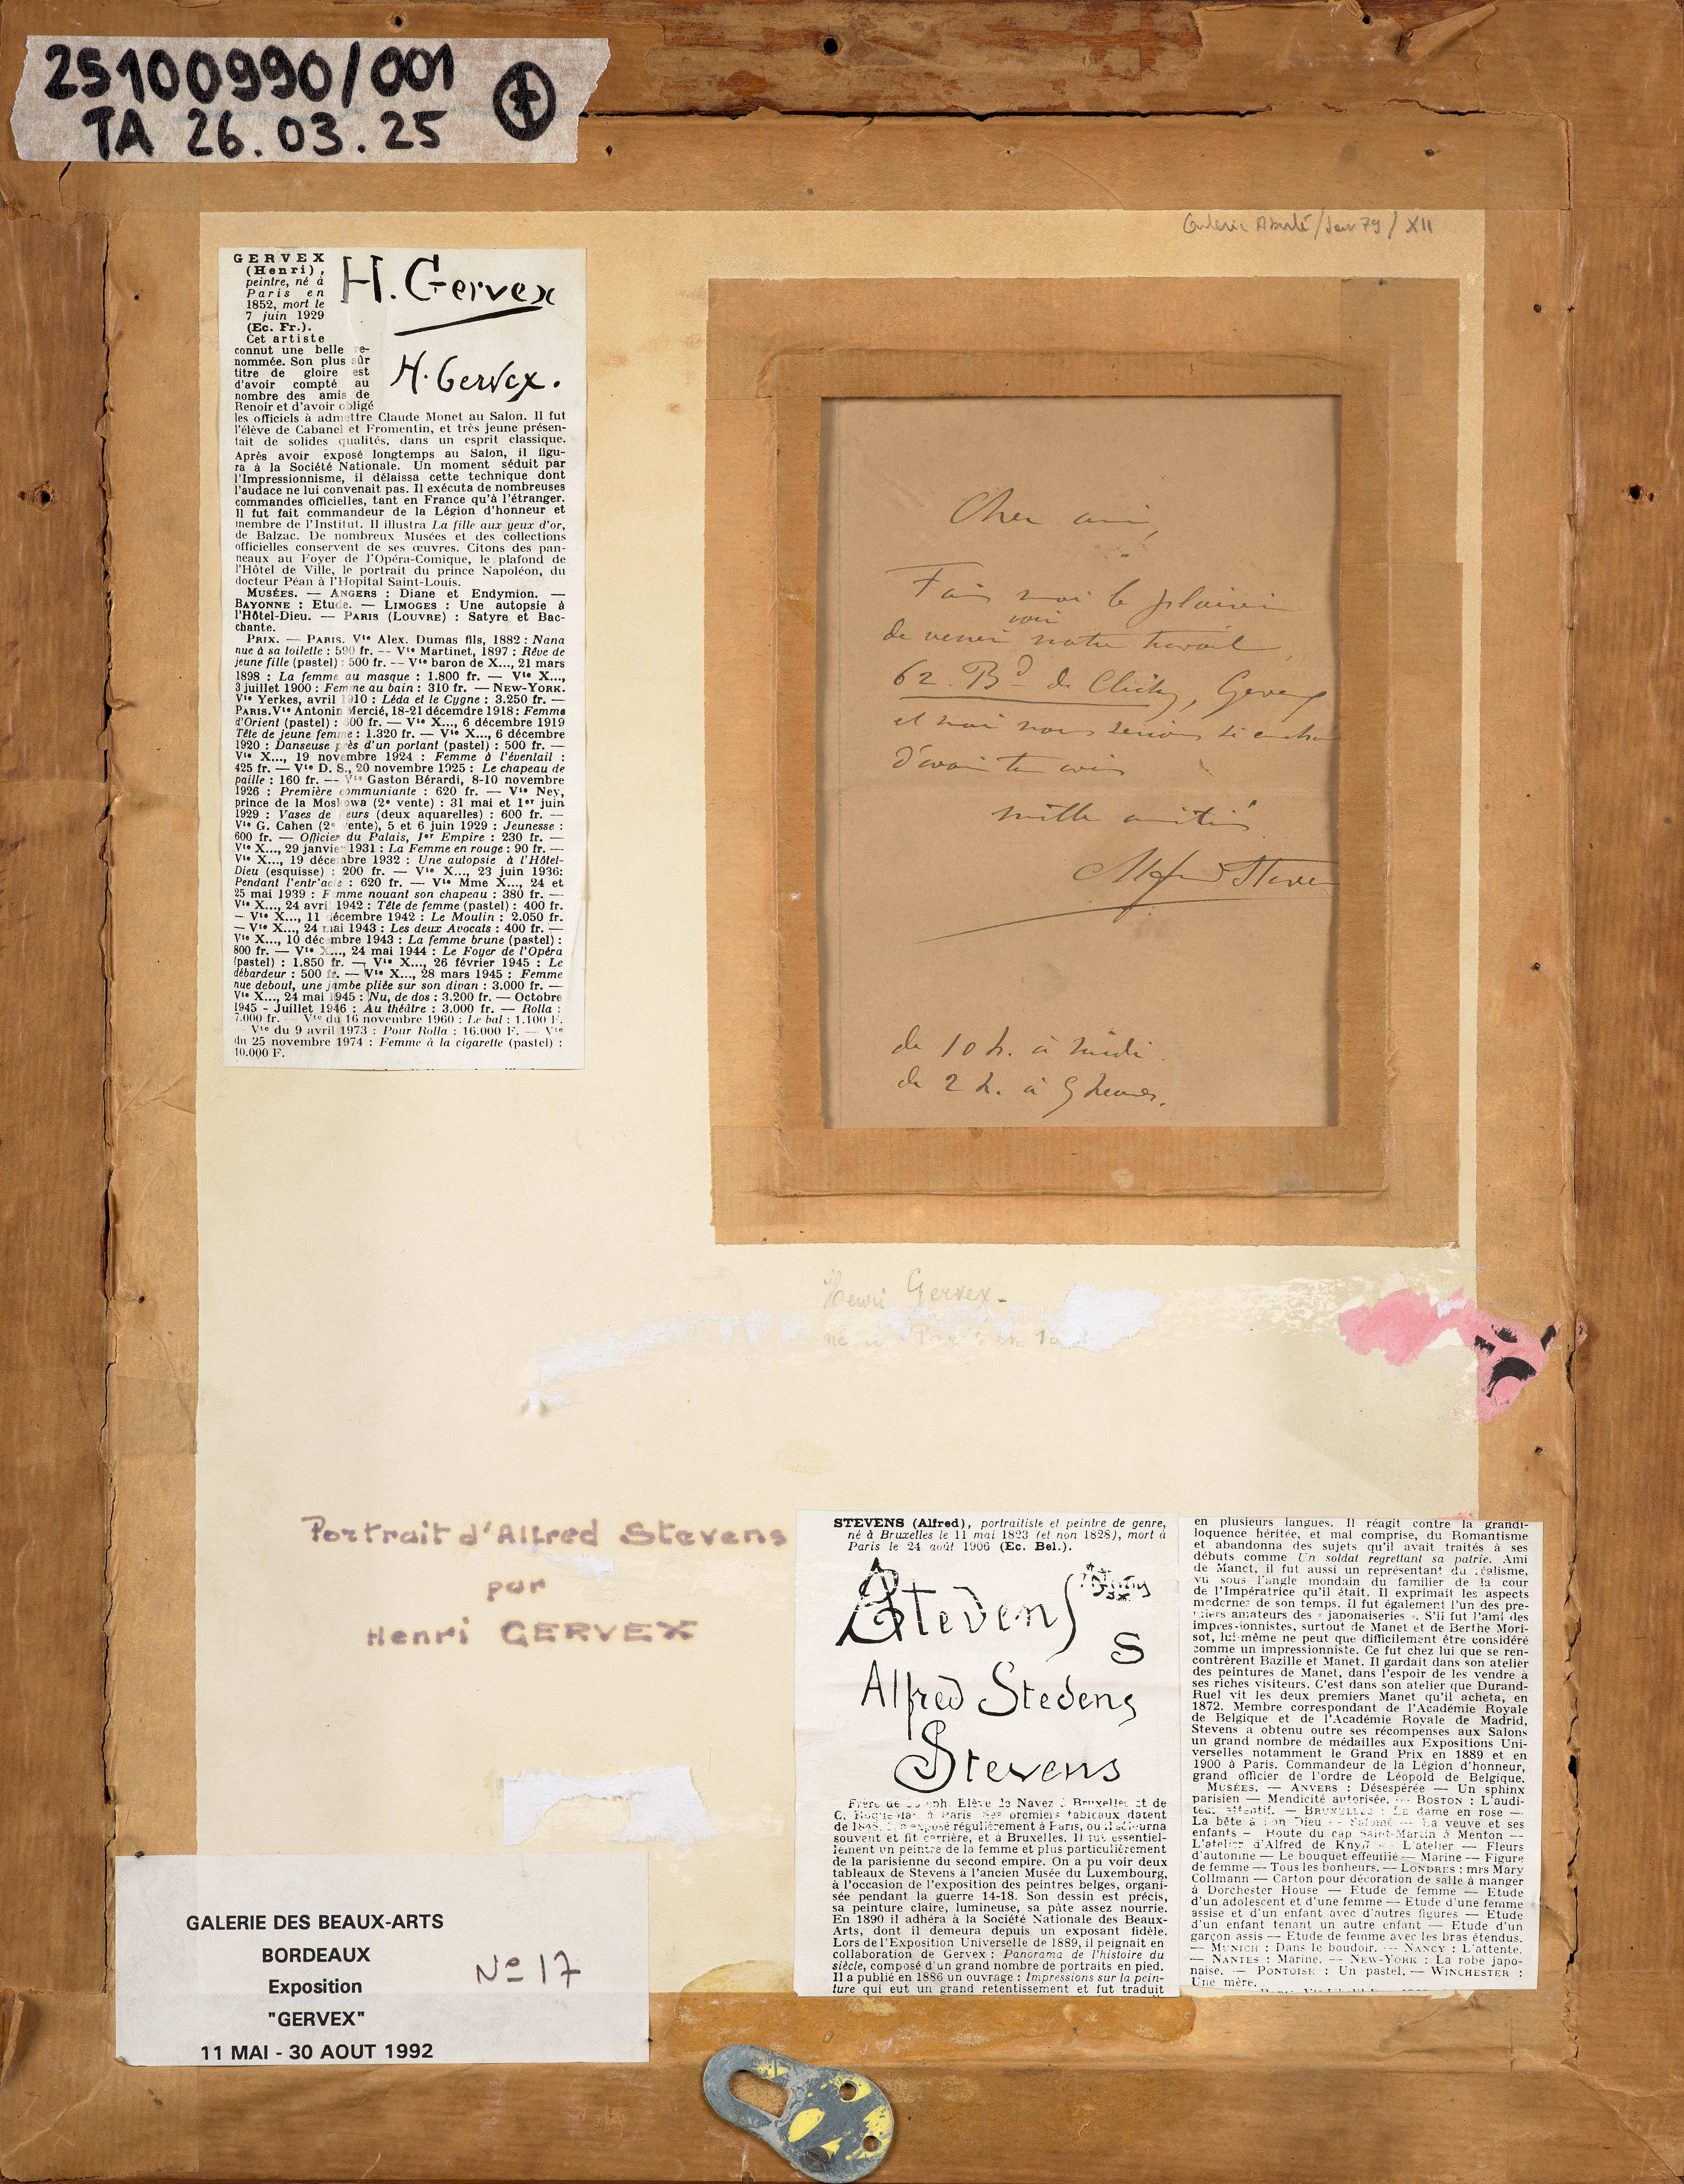 25100990/001
TA 26.03.25
Jan 79 / XII
GERVEX
(Henri),
peintre, né à
Paris en
1852, mort le
7 juin 1929
(Ec. Fr.).
H. Gervex
H. Gervex.
Cet artiste
connut une belle re-
nommée. Son plus sûr
titre de gloire est
d'avoir compté au
nombre des amis de
Renoir et d'avoir obligé
les officiels à admettre Claude Monet au Salon. Il fut
l'élève de Cabanel et Fromentin, et très jeune présen-
tait de solides qualités, dans un esprit classique.
Après avoir exposé longtemps au Salon, il figu-
ra à la Société Nationale. Un moment séduit par
l'Impressionnisme, il délaissa cette technique dont
l'audace ne lui convenait pas. Il exécuta de nombreuses
commandes officielles, tant en France qu'à l'étranger.
Il fut fait commandeur de la Légion d'honneur et
membre de l'Institut. Il illustra La fille aux yeux d'or,
de Balzac. De nombreux Musées et des collections
officielles conservent de ses œuvres. Citons des pan-
neaux au Foyer de l'Opéra-Comique, le plafond de
l'Hôtel de Ville, le portrait du prince Napoléon, du
docteur Péan à l'Hopital Saint-Louis.
MUSÉES. — ANGERS : Diane et Endymion. —
BAYONNE : Etude. — LIMOGES : Une autopsie à
l'Hôtel-Dieu. — PARIS (LOUVRE) : Satyre et Bac-
chante.
PRIX. — PARIS. Vte Alex. Dumas fils, 1882 : Nana
nue à sa toilette : 590 fr. -- Vte Martinet, 1897 : Rêve de
jeune fille (pastel) : 500 fr. -- Vte baron de X..., 21 mars
1898 : La femme au masque : 1.800 fr. — Vte X...,
3 juillet 1900 : Femme au bain : 310 fr. — NEW-YORK.
Vte Yerkes, avril 1910 : Léda et le Cygne : 3.250 fr. —
PARIS. Vte Antonin Mercié, 18-21 décemdre 1918 : Femme
d'Orient (pastel) : 600 fr. — Vte X..., 6 décembre 1919
Tête de jeune femme : 1.320 fr. — Vte X..., 6 décembre
1920 : Danseuse près d'un portant (pastel) : 500 fr. —
Vte X..., 19 novembre 1924 : Femme à l'éventail :
425 fr. — Vte D. S., 20 novembre 1925 : Le chapeau de
paille : 160 fr. -- Vte Gaston Bérardi, 8-10 novembre
1926 : Première communiante : 620 fr. — Vte Ney,
prince de la Moskowa (2e vente) : 31 mai et 1er juin
1929 : Vases de fleurs (deux aquarelles) : 600 fr. —
Vte G. Cahen (2e vente), 5 et 6 juin 1929 : Jeunesse :
600 fr. — Officier du Palais, Ier Empire : 230 fr. —
Vte X..., 29 janvier 1931 : La Femme en rouge : 90 fr. —
Vte X..., 19 décembre 1932 : Une autopsie à l'Hôtel-
Dieu (esquisse) : 200 fr. — Vte X..., 23 juin 1936:
Pendant l'entr'acte : 620 fr. — Vte Mme X..., 24 et
25 mai 1939 : Femme nouant son chapeau : 380 fr. —
Vte X..., 24 avril 1942 : Tête de femme (pastel) : 400 fr.
— Vte X..., 11 décembre 1942 : Le Moulin : 2.050 fr.
— Vte X..., 24 mai 1943 : Les deux Avocats : 400 fr. —
Vte X..., 10 décembre 1943 : La femme brune (pastel) :
800 fr. — Vte X..., 24 mai 1944 : Le Foyer de l'Opéra
(pastel) : 1.850 fr. — Vte X..., 26 février 1945 : Le
débardeur : 500 fr. — Vte X..., 28 mars 1945 : Femme
nue debout, une jambe pliée sur son divan : 3.000 fr. —
Vte X..., 24 mai 1945 : Nu, de dos : 3.200 fr. — Octobre
1945 - Juillet 1946 : Au théâtre : 3.000 fr. — Rolla :
7.000 fr. — Vte du 16 novembre 1960 : Le bal : 1.100 F.
— Vte du 9 avril 1973 : Pour Rolla : 16.000 F. — Vte
du 25 novembre 1974 : Femme à la cigarette (pastel) :
10.000 F.
Cher ami,
Fais moi le plaisir
de venir voir notre travail,
62. Bd de Clichy, Gervex
et moi nous serions si enchan
d'avoir ton avis
mille amitiés
Alfred Steven
de 10 h. à midi.
de 2 h. à 5 heures.
Henri Gervex -
né à Paris en
Portrait d'Alfred Stevens
par
Henri GERVEX
STEVENS (Alfred), portraitiste et peintre de genre,
né à Bruxelles le 11 mai 1823 (et non 1828), mort à
Paris le 24 août 1906 (Ec. Bel.).
AStevens
S
Alfred Stevens
Stevens
Frère de Joseph. Elève de Navez à Bruxelles et de
C. Roqueplan à Paris. Ses premiers tableaux datent
de 1848. Il a exposé régulièrement à Paris, ou il séjourna
souvent et fit carrière, et à Bruxelles. Il fut essentiel-
lement un peintre de la femme et plus particulièrement
de la parisienne du second empire. On a pu voir deux
tableaux de Stevens à l'ancien Musée du Luxembourg,
à l'occasion de l'exposition des peintres belges, organi-
sée pendant la guerre 14-18. Son dessin est précis,
sa peinture claire, lumineuse, sa pâte assez nourrie.
En 1890 il adhéra à la Société Nationale des Beaux-
Arts, dont il demeura depuis un exposant fidèle.
Lors de l'Exposition Universelle de 1889, il peignait en
collaboration de Gervex : Panorama de l'histoire du
siècle, composé d'un grand nombre de portraits en pied.
Il a publié en 1886 un ouvrage : Impressions sur la pein-
ture qui eut un grand retentissement et fut traduit
en plusieurs langues. Il réagit contre la grandi-
loquence héritée, et mal comprise, du Romantisme
et abandonna des sujets qu'il avait traités à ses
débuts comme Un soldat regrettant sa patrie. Ami
de Manet, il fut aussi un représentant du réalisme,
vu sous l'angle mondain du familier de la cour
de l'Impératrice qu'il était. Il exprimait les aspects
modernes de son temps. Il fut également l'un des pre-
miers amateurs des « japonaiseries ». S'il fut l'ami des
impressionnistes, surtout de Manet et de Berthe Mori-
sot, lui-même ne peut que difficilement être considéré
comme un impressionniste. Ce fut chez lui que se ren-
contrèrent Bazille et Manet. Il gardait dans son atelier
des peintures de Manet, dans l'espoir de les vendre à
ses riches visiteurs. C'est dans son atelier que Durand-
Ruel vit les deux premiers Manet qu'il acheta, en
1872. Membre correspondant de l'Académie Royale
de Belgique et de l'Académie Royale de Madrid,
Stevens a obtenu outre ses récompenses aux Salons
un grand nombre de médailles aux Expositions Uni-
verselles notamment le Grand Prix en 1889 et en
1900 à Paris. Commandeur de la Légion d'honneur,
grand officier de l'ordre de Léopold de Belgique.
MUSÉES. — ANVERS : Désespérée — Un sphinx
parisien — Mendicité autorisée. — BOSTON : L'audi-
teur attentif. — BRUXELLES : La dame en rose —
La bête à bon Dieu — Salomé — La veuve et ses
enfants — Route du cap Saint-Martin à Menton —
L'atelier d'Alfred de Knyff — L'atelier — Fleurs
d'automne — Le bouquet effeuillé — Marine — Figure
de femme — Tous les bonheurs. — LONDRES : mrs Mary
Collmann — Carton pour décoration de salle à manger
à Dorchester House — Etude de femme — Etude
d'un adolescent et d'une femme — Etude d'une femme
assise et d'un enfant avec d'autres figures — Etude
d'un enfant tenant un autre enfant — Etude d'un
garçon assis — Etude de femme avec les bras étendus.
— MUNICH : Dans le boudoir. — NANCY : L'attente.
— NANTES : Marine. — NEW-YORK : La robe japo-
naise. — PONTOISE : Un pastel. — WINCHESTER :
Une mère.
GALERIE DES BEAUX-ARTS
BORDEAUX
Exposition
"GERVEX"
11 MAI - 30 AOUT 1992
No 17